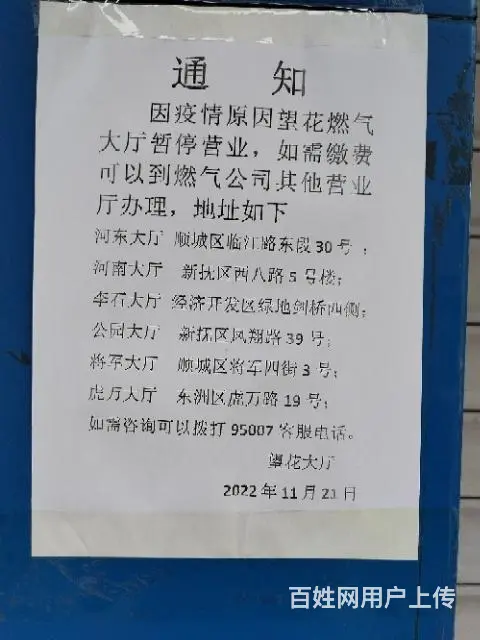 通 知
因疫情原因望花燃气
大厅暂停营业，如需缴费
可以到燃气公司其他营业
厅办理，地址如下
河东大厅 顺城区临江路东段 30 号；
河南大厅 新抚区西八路 5 号楼；
李石大厅 经济开发区绿地剑桥西侧；
公园大厅 新抚区凤翔路 39 号；
将军大厅 顺城区将军四街 3 号；
虎万大厅 东洲区虎万路 19 号；
如需咨询可以拨打 95007 客服电话。
望花大厅
2022 年 11 月 21 日
百姓网用户上传